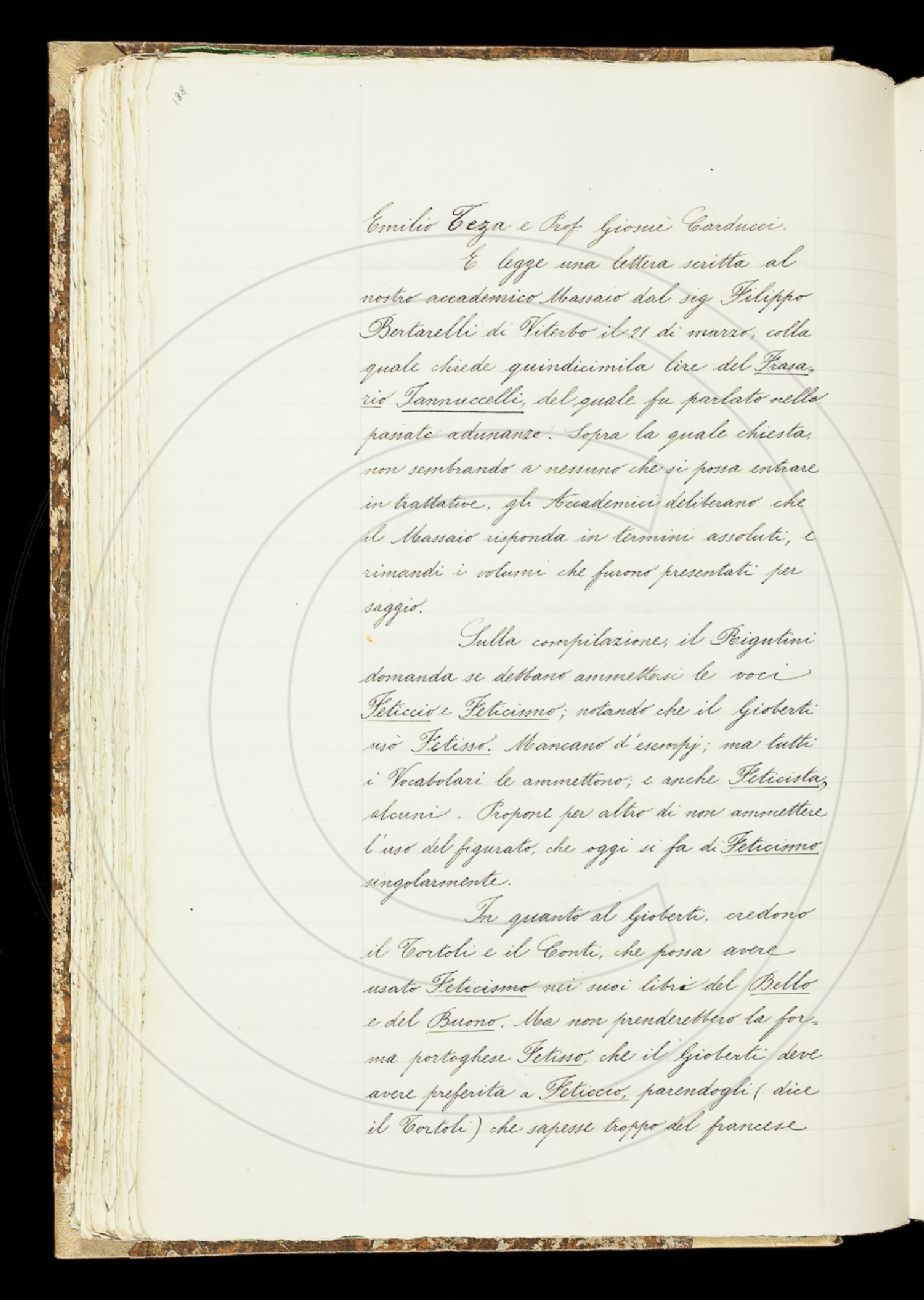 188
Emilio Teza e Prof. Giosuè Carducci.
E legge una lettera scritta al
nostro accademico Massaio dal sig. Filippo
Bertarelli di Viterbo il 21 di marzo, colla
quale chiede quindicimila lire del Frasa-
rio Iannuccelli, del quale fu parlato nelle
passate adunanze. Sopra la quale chiesta,
non sembrando a nessuno che si possa entrare
in trattative, gli Accademici deliberano che
il Massaio risponda in termini assoluti, e
rimandi i volumi che furono presentati per
saggio.
Sulla compilazione, il Rigutini
domanda se debbano ammettersi le voci
Feticcio e Feticismo; notando che il Gioberti
usò Fetisso. Mancano d'esempj; ma tutti
i Vocabolari le ammettono; e anche Feticista,
alcuni. Propone per altro di non ammettere
l'uso del figurato, che oggi si fa di Feticismo
singolarmente.
In quanto al Gioberti, credono
il Tortoli e il Conti, che possa avere
usato Feticismo nei suoi libri del Bello
e del Buono. Ma non prenderebbero la for-
ma portoghese Fetisso, che il Gioberti deve
avere preferita a Feticcio, parendogli (dice
il Tortoli) che sapesse troppo del francese